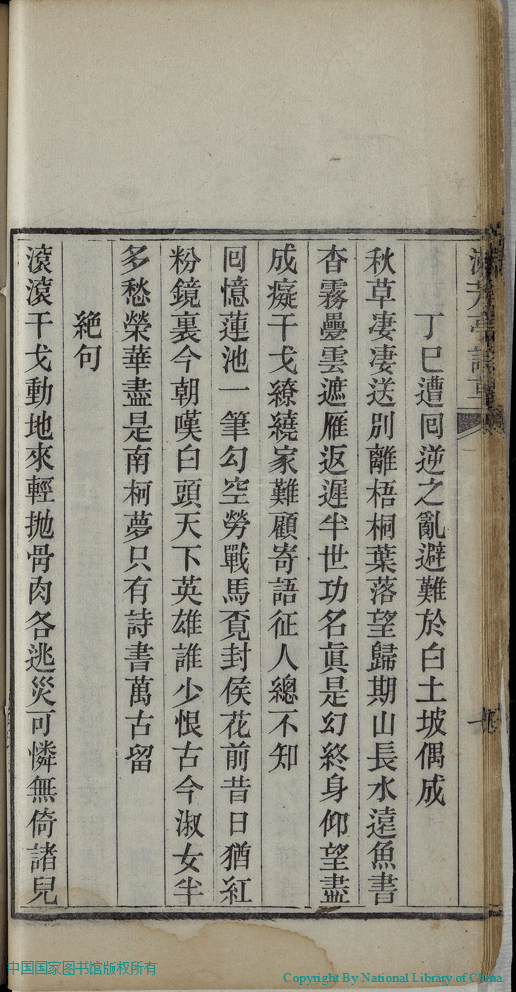 丁巳遭回逆之亂避難於白土坡偶成
秋草凄凄送別離梧桐葉落望歸期山長水遠魚書
杳霧疊雲遮雁返遲半世功名眞是幻終身仰望盡
成癡干戈繚繞家難顧寄語征人總不知
回憶蓮池一筆勾空勞戰馬覓封侯花前昔日猶紅
粉鏡裏今朝嘆白頭天下英雄誰少恨古今淑女半
多愁榮華盡是南柯夢只有詩書萬古留
絕句
滾滾干戈動地來輕拋骨肉各逃災可憐無倚諸兒
中国国家图书馆版权所有
Copyright By National Library of China